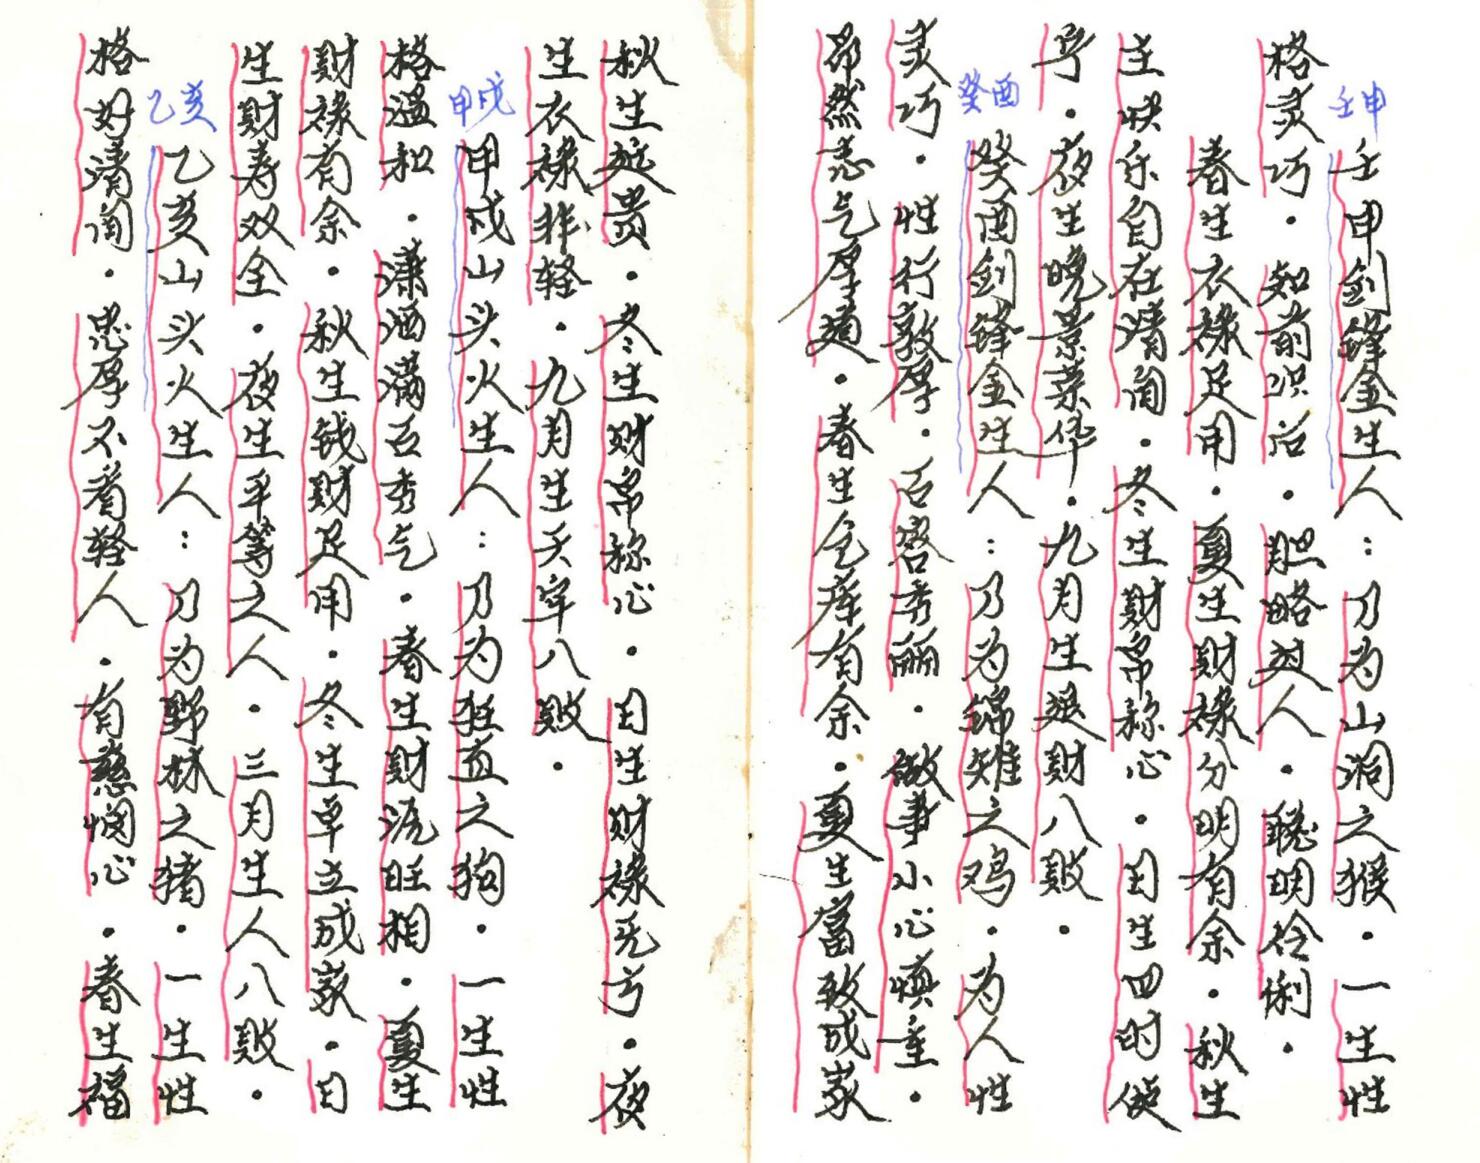 壬申
壬申剑锋金生人：乃为山洞之猴．一生性
格灵巧．知前识后．胆略过人．聪明伶俐．
春生衣禄足用．夏生财禄分明有余．秋生
主快乐自在清闲．冬生财帛称心．日生四时使
亨．夜生晚景荣华．九月生退财八败．
癸酉
癸酉剑锋金生人：乃为锦雉之鸡．为人性
灵巧．性行敦厚．百容秀丽．做事小心慎重．
昂然志气厚道．春生仓库有余．夏生富致成家
秋生延贵．冬生财帛称心．日生财禄无亏．夜
生衣禄非轻．九月生天牢八败．
甲戌
甲戌山头火生人：乃为狂直之狗．一生性
格温和．潇洒满百秀气．春生财流旺相．夏生
财禄有余．秋生钱财足用．冬生卓立成家．日
生财寿双全．夜生平等之人．三月生人八败．
乙亥
乙亥山头火生人：乃为野林之猪．一生性
格好清闲．忠厚不着轻人．有慈悯心．春生福